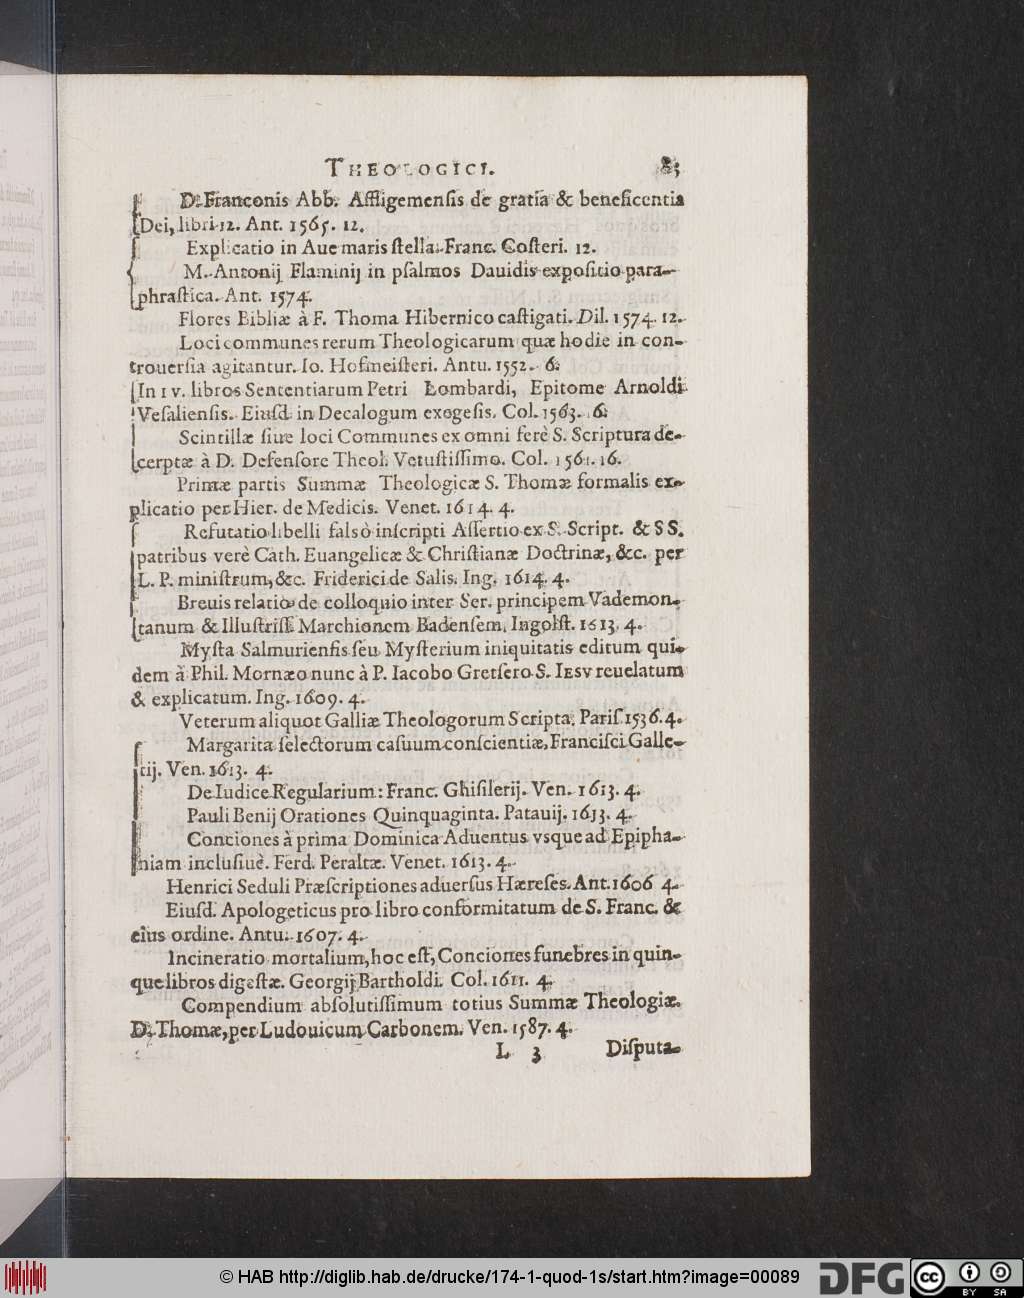 THEOLOGICI. 83
D. Franconis Abb. Affligemenſis de gratia & beneficentia
Dei, libri 12. Ant. 1565. 12.
Explicatio in Aue maris ſtella. Franc. Coſteri. 12.
M. Antonij Flaminij in pſalmos Dauidis expoſitio para-
phraſtica. Ant. 1574.
Flores Bibliæ à F. Thoma Hibernico caſtigati. Dil. 1574. 12.
Loci communes rerum Theologicarum quæ hodie in con-
trouerſia agitantur. Io. Hofmeiſteri. Antu. 1552. 6.
In IV. libros Sententiarum Petri Lombardi, Epitome Arnoldi
Veſalienſis. Eiuſd. in Decalogum exegeſis. Col. 1563. 6.
Scintillæ ſiue loci Communes ex omni ferè S. Scriptura de-
cerptæ à D. Defenſore Theol. Vetuſtiſſimo. Col. 1561. 16.
Primæ partis Summæ Theologicæ S. Thomæ formalis ex-
plicatio per Hier. de Medicis. Venet. 1614. 4.
Refutatio libelli falsò inſcripti Aſſertio ex S. Script. & SS.
patribus verè Cath. Euangelicæ & Chriſtianæ Doctrinæ, &c. per
L. P. miniſtrum, &c. Friderici de Salis. Ing. 1614. 4.
Breuis relatio de colloquio inter Ser. principem Vademon-
tanum & Illuſtriſſ. Marchionem Badenſem. Ingolſt. 1613. 4.
Myſta Salmurienſis ſeu Myſterium iniquitatis editum qui-
dem à Phil. Mornæo nunc à P. Iacobo Gretſero S. IESV reuelatum
& explicatum. Ing. 1609. 4.
Veterum aliquot Galliæ Theologorum Scripta. Pariſ. 1536. 4.
Margarita ſelectorum caſuum conſcientiæ, Franciſci Galle-
tij. Ven. 1613. 4.
De Iudice Regularium: Franc. Ghiſilerij. Ven. 1613. 4.
Pauli Benij Orationes Quinquaginta. Patauij. 1613. 4.
Conciones à prima Dominica Aduentus vsque ad Epipha-
niam incluſiuè. Ferd. Peraltæ. Venet. 1613. 4.
Henrici Seduli Præſcriptiones aduerſus Hæreſes. Ant. 1606 4.
Eiuſd. Apologeticus pro libro conformitatum de S. Franc. &
eius ordine. Antu. 1607. 4.
Incineratio mortalium, hoc eſt, Conciones funebres in quin-
que libros digeſtæ. Georgij Bartholdi. Col. 1611. 4.
Compendium abſolutiſſimum totius Summæ Theologiæ
D. Thomæ, per Ludouicum Carbonem. Ven. 1587. 4.
L 3 Diſputa-
© HAB http://diglib.hab.de/drucke/174-1-quod-1s/start.htm?image=00089
DFG
cc BY SA